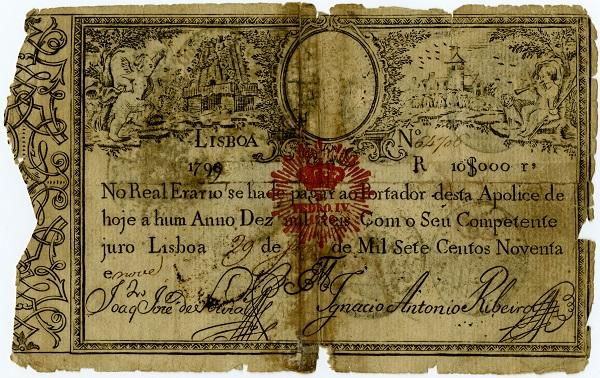 LISBOA Nº
179 R 10$000 rs
PEDRO IV
No Real Erario se hade pagar ao Portador desta Apolice de
hoje a hum Anno Dez mil reis Com o Seu Competente
juro Lisboa 29 de de Mil Sete Centos Noventa
e nove
Joaq Joze de Ignacio Antonio Ribeiro